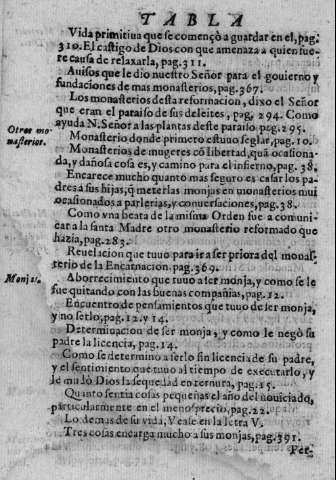 TABLA
Vida primitiua que se començò a guardar en el, pag.
310. El castigo de Dios con que amenaza a quien fue-
re causa de relaxarla, pag. 311.
Auisos que le dio nuestro Señor para el gouierno y
fundaciones de mas monasterios, pag. 367.
Los monasterios desta reformacion, dixo el Señor
que eran el paraiso de sus deleites, pag. 294. Como
ayuda N. Señor a las plantas deste paraiso. pag. 295.
Otros mo-
nasterios.
Monasterio donde primero estuuo seglar, pag. 10.
Monasterios de mugeres cõ libertad, quã ocasiona-
da, y dañosa cosa es, y camino para el infierno, pag. 38.
Encarece mucho quanto mas seguro es casar los pa-
dres a sus hijas, q̃ meterlas monjas en monasterios mui
ocasionados a parlerias, y conuersaciones, pag. 38.
Como vna beata de la misma Orden fue a comuni-
car a la santa Madre otro monasterio reformado que
hazia, pag. 283.
Reuelacion que tuuo para ir a ser priora del monas-
terio de la Encarnacion. pag. 369.
Monja.
Aborrecimiento que tuuo a ser monja, y como se le
fue quitando con las buenas compañias, pag. 12.
Encuentro de pensamientos que tuuo de ser monja,
y no serlo, pag. 12. y 14.
Determinacion de ser monja, y como le negò su
padre la licencia, pag. 14.
Como se determino a serlo sin licencia de su padre,
y el sentimiento que tuuo al tiempo de executarlo, y
le mudò Dios la sequedad en ternura, pag. 15.
Quanto sentia cosas pequeñas el año del nouiciado,
particularmente en el menosprecio, pag. 22.
Lo demas de su vida, Vease en la letra V.
Tres cosas encarga mucho a sus monjas, pag. 391.
Per-